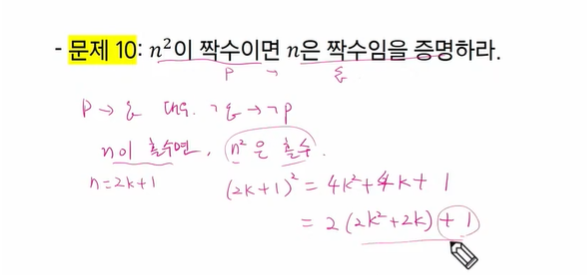 - 문제 10: n²이 짝수이면 n은 짝수임을 증명하라.
P → q
P → q 대우. ¬q → ¬p
n이 홀수면, n²은 홀수.
n=2k+1 (2k+1)² = 4k²+4k+1
= 2(2k²+2k)+1